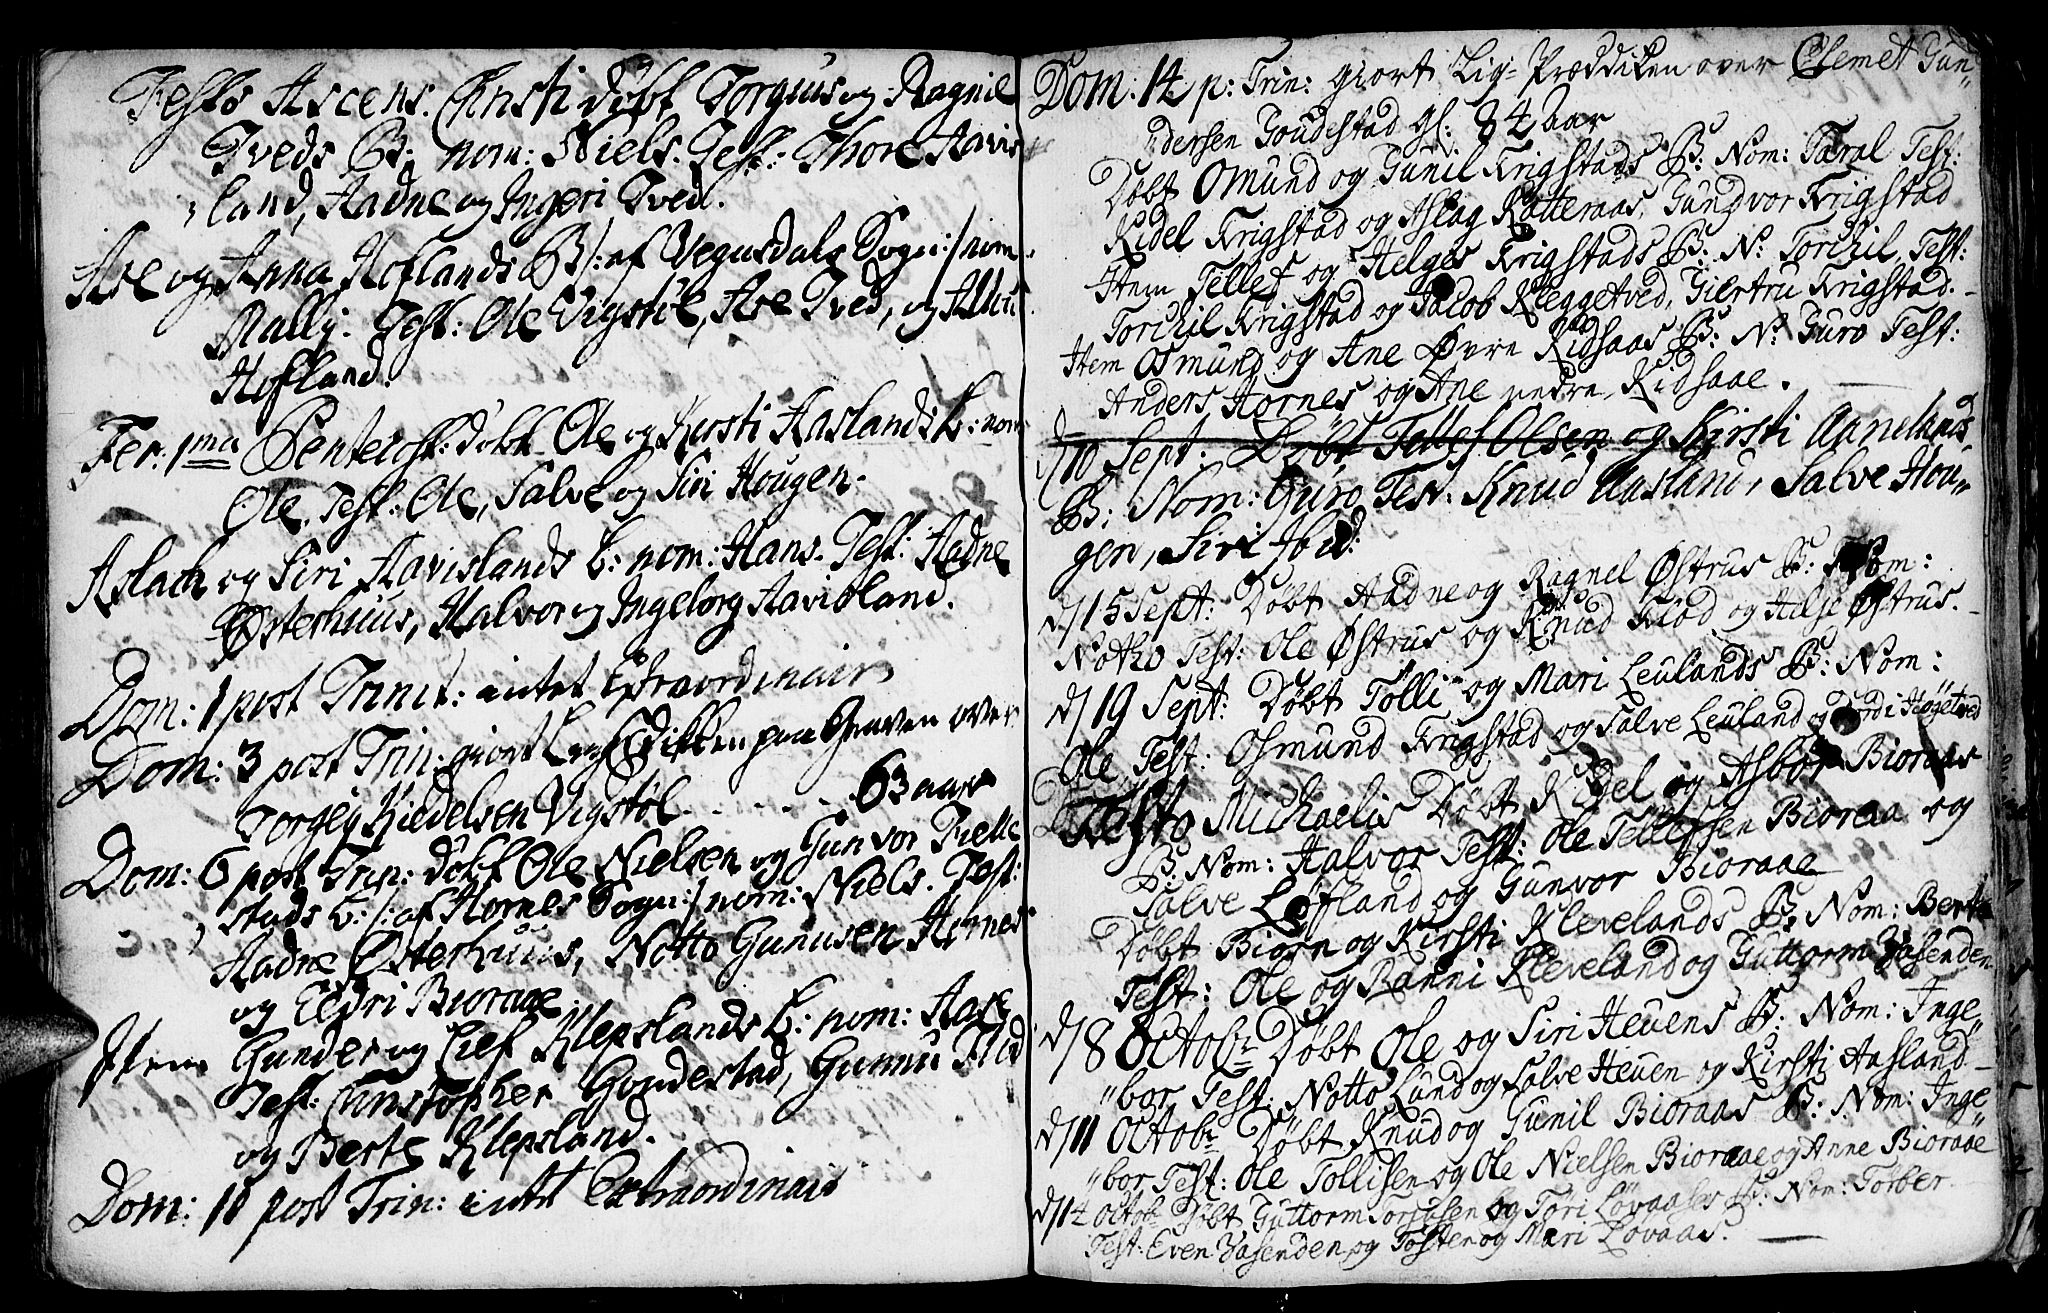 Festo Ascens. Christi döbt Torgius og Ragnil
Tveds B: nom: Niels. Test: Thore Aavis
land, Aadne og Ingeri Tved.
Are og Anna Hoflands B /: af Vegusdals Sogn :/ nom
Mallj. Test: Ole Vigstöl, Are Tved, og
Hofland.
Fer: 1ma Pentecost: döbt Ole og Kersti Aaslands b: nom
Ole. Test: Ole, Salve og Siri Hougen.
Aslach og Siri Aavislands b: nom: Hans. Test: Aadne
Østerhuus, Halvor og Ingeborg Aavisland.
Dom: 1 post Trinit: intet Extraordinair
Dom: 3 post Trin: giort paa Graven over
Torgej Kiedelsen Vigstöl . . . . . 63 aar
Dom: 6 post Trin: döbt Ole Nielsen og Gunvor Fielle
stads b: /: af Hornes Sogn :/ nom: Niels. Test:
Aadne Østerhuus, Notto Gunusen Hornes
og Eedri Bioraae.
Item Gunder og Lief Klepslands b: nom: Aase
Test: Christopher Goudestad, Gunnu Flad
og Berte Klepsland.
Dom: 10 post Trin: intet Extraordinair
Dom: 14 p: Trin: giort Lig-Præddiken over Clemet Gun"
dersen Goudestad gl: 84 aar
Döbt Omund og Gunil Frigstads B: Nom: Taral Test:
Kidel Frigstad og Aslag Rotteraas, Gundvor Frigstad
Item Tellef og Helges Frigstads B: N: Torchil, Test:
Torchil Frigstad og Jacob Kleggetved, Giertru Frigstad.
Item Osmund og Ane Øvre Kidsaas B: N: Guro Test:
Anders Hornes og Ane nedre Kidsaae.
d/10 Sept: Döbt Tellef Olsen og Kirsti Aanelands
B: Nom: Guro Test: Knud Aasland, Salve Hou"
gen, Siri Ibid:
d/15 Sept: Döbt Aadne og Ragnel Østrus B: Nom:
Notto Test: Ole Østrus og Knud Flad og Helje Østrus.
d/19 Sept: Döbt Tölli og Mari Leulands B: Nom:
Ole Test: Osmund Frigstad og Salve Leuland og
Festo Michaelis Döbt Kidel og Asbör Bioraas
B: Nom: Halvor Test: Ole Tellefsen Bioraa og
Salve Löfland og Gunvor Bioraae
Döbt Biörn og Kirsti Klevelands B: Nom: Berte
Test: Ole og Ranni Kleveland og Guttorm Vasenden
d/8 Octobr Döbt Ole og Siri Heuens B: Nom: Inge"
"bor Test: Notto Lund og Salve Heuen og Kirsti Aasland
d/11 Octobr Döbt Knud og Gunil Bioraas B: Nom: Inge"
"bor Test: Ole Tollisen og Ole Nielsen Bioraae og Anne Bioraae
d/14 Octobr Döbt Guttorm Torjusen og Tori Lövaases B: Nom: Torber
Test: Even Vasenden og Tosten og Mari Lövaas.